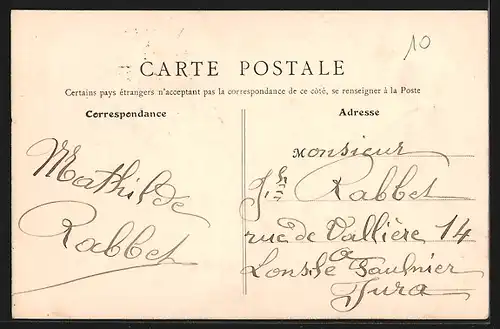 10
CARTE POSTALE
Certains pays étrangers n'acceptant pas la correspondance de ce côté, se renseigner à la Poste
Correspondance
Adresse
Mathilde
Rabbet
Monsieur
Rabbet
rue de Vallière 14
à
Lons le Saulnier
Jura